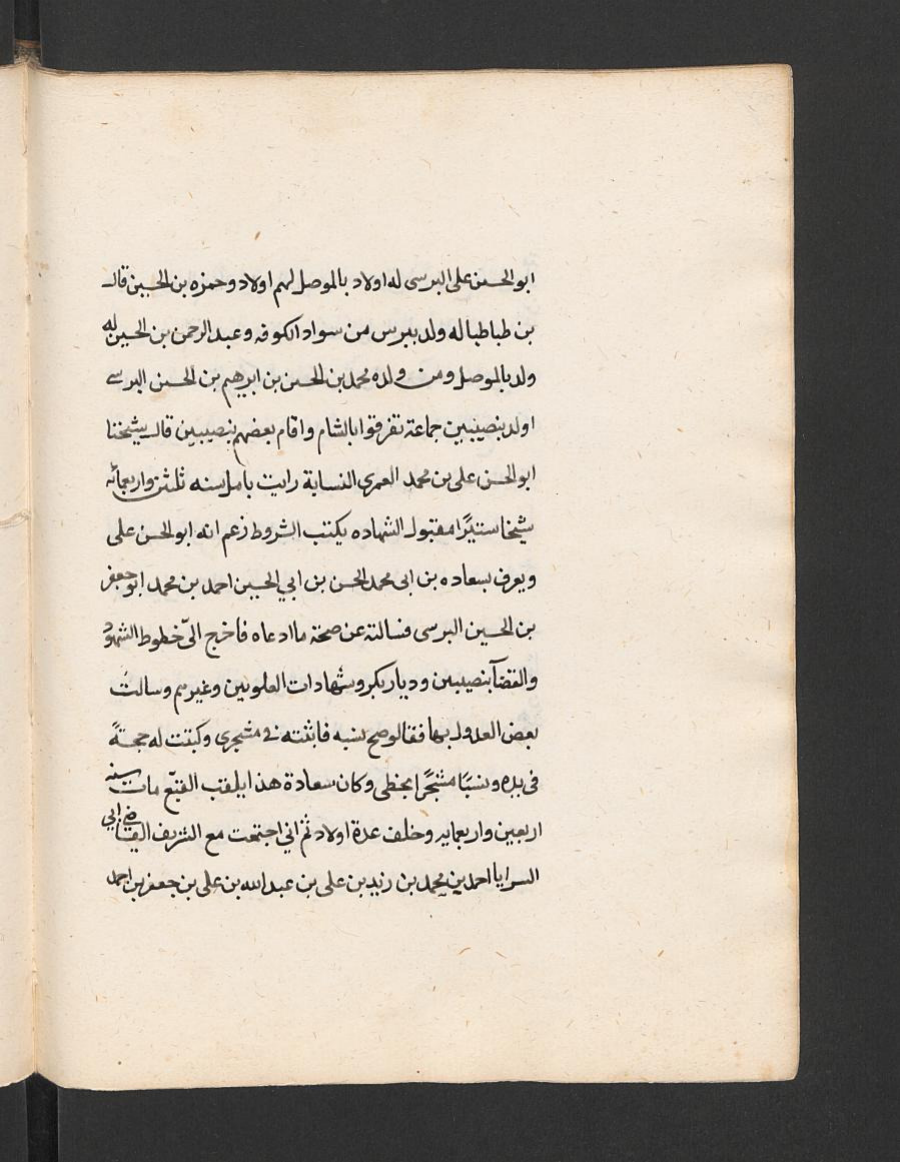 ابو الحسن على البرسى له اولاد بالموصل لهم اولاد وحمزه بن الحسين قال
بن طباطبا له ولد ببرس من سواد الكوفه وعبد الرحمن بن الحسين له
ولد بالموصل ومن ولده محمد بن الحسن بن ابرهيم بن الحسن البرسى
اولد بنصيبين جماعة تفرقوا بالشام واقام بعضهم بنصيبين قال شيخنا
ابو الحسن على بن محمد العمرى النسابة رايت بامل سنه ثلثين واربعمائه
شيخا ستيرًا مقبول الشهاده يكتب الشروط زعم انه ابو الحسن على
ويعرف بسعاده بن ابى محمد الحسن بن ابي الحسين احمد بن محمد ابو جعفر
بن الحسين البرسى فسالته عن صحة ما ادعاه فاخرج الىّ خطوط الشهود
والقضآ بنصيبين وديار بكر وشهادات العلويين وغيرهم وسالت
بعض العدول بها فقالو صح نسبه فاثبته في مشجرى وكبتت له حجةً
فى يده ونسبًا مشجرًا بخطى وكان سعادة هذا يلقب القبّع مات سنه
اربعين واربعمايه وخلف عدة اولاد ثم اني اجتمعت مع الشريف القاضى ابي
السرايا احمد بن محمد بن زيد بن على بن عبد الله بن على بن جعفر بن احمد